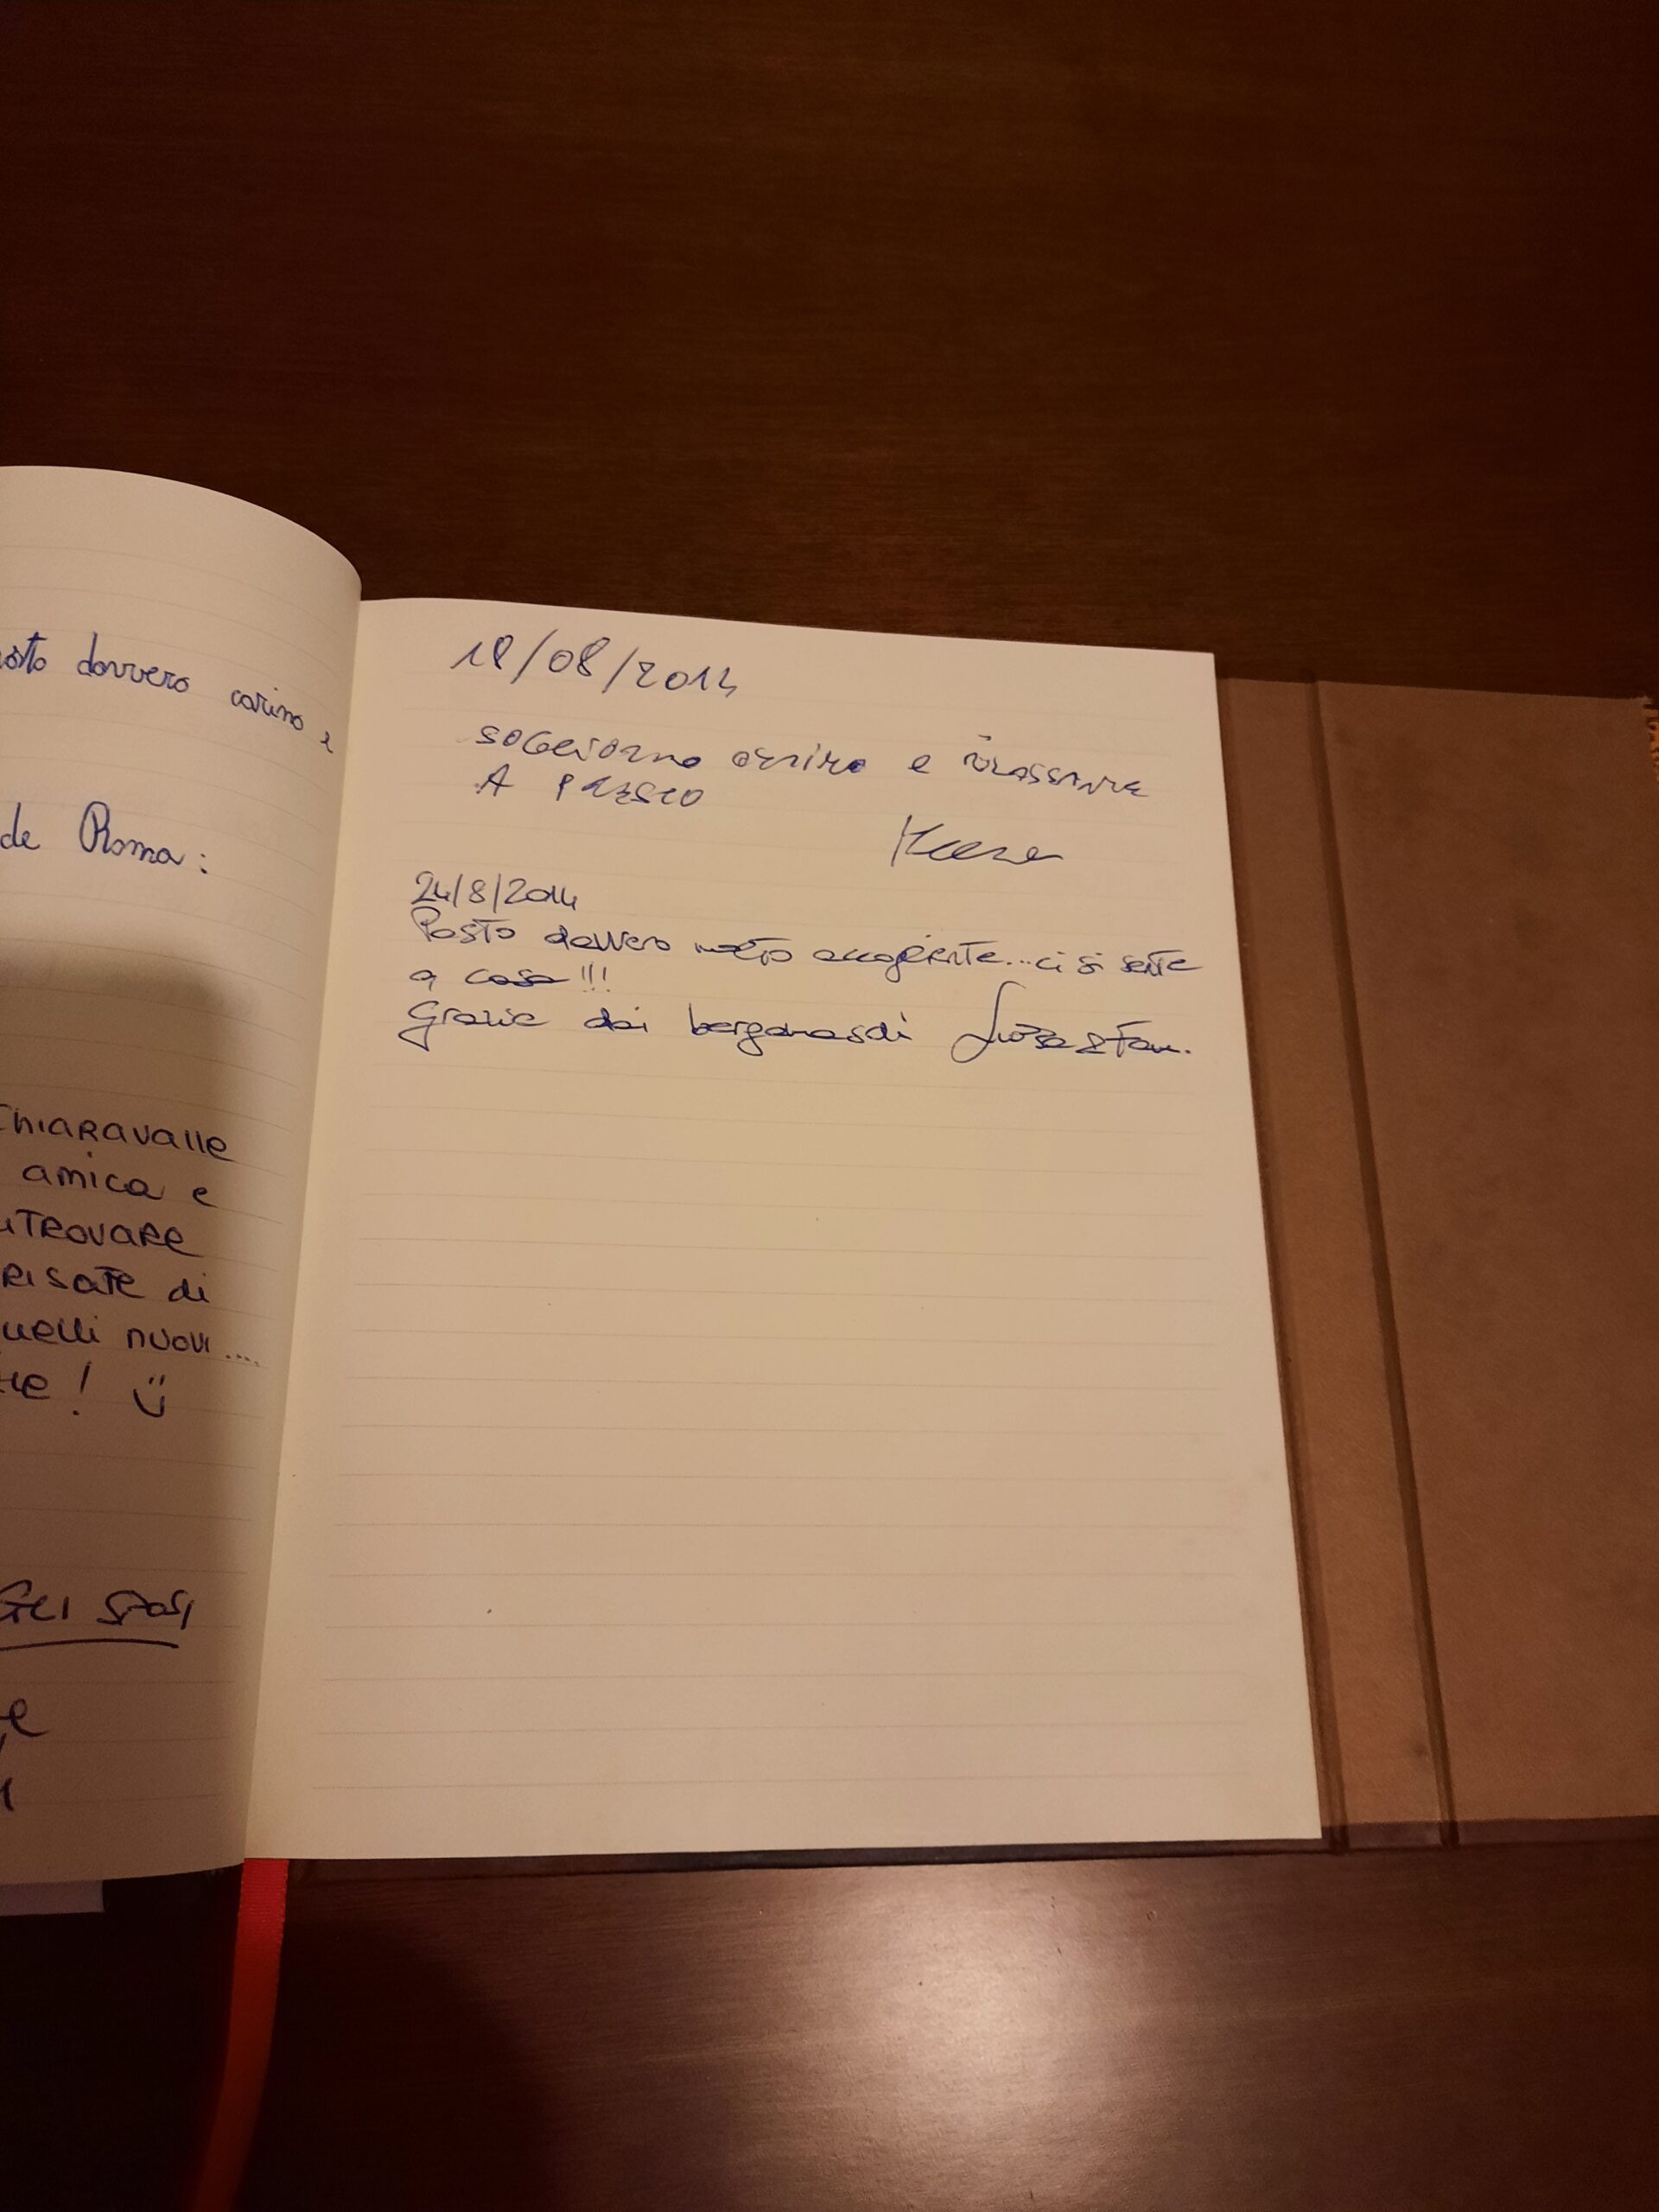 osto davvero carino e
de Roma:
Chiaravalle
amica e
TROVARE
RISATE di
quelli nuovi....
! :)
Gli sposi
18/08/2014
SOGGIORNO OTTIMO E RILASSANTE
A PRESTO
24/8/2014
Posto davvero molto accogliente...ci si sente
a casa!!!
Grazie dai bergamaschi Luisa &